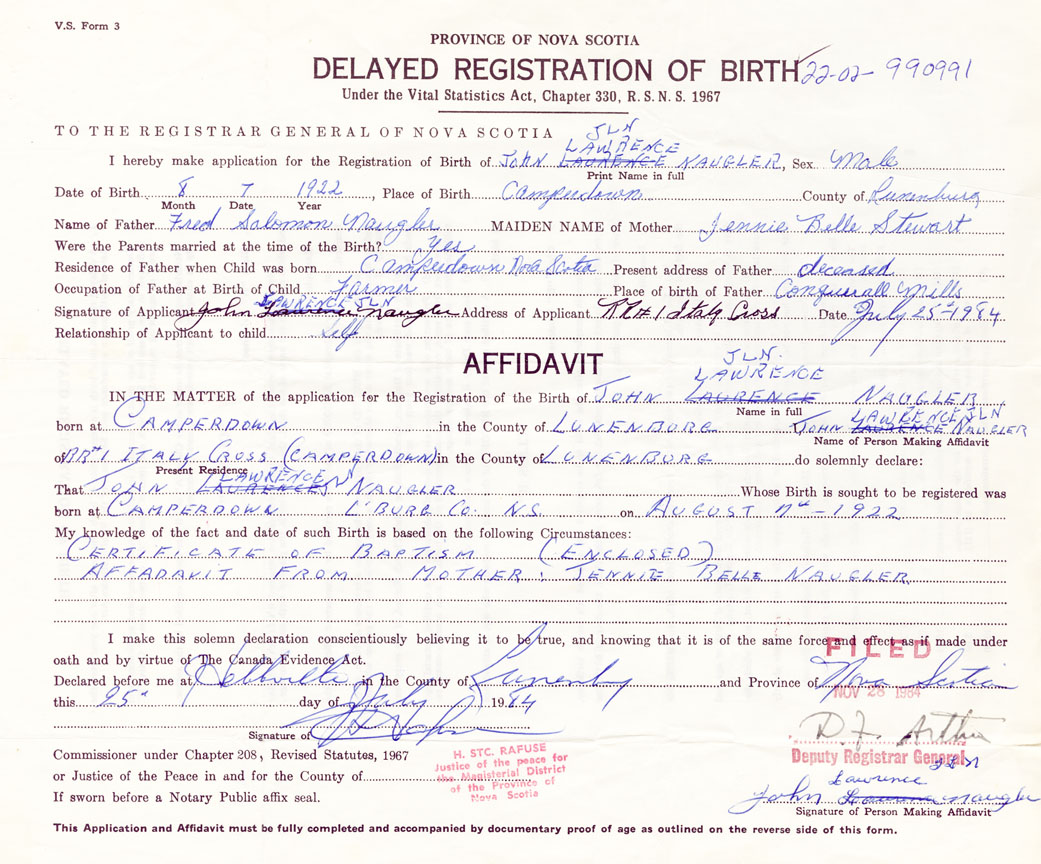 V.S. Form 3
PROVINCE OF NOVA SCOTIA
DELAYED REGISTRATION OF BIRTH 22-02- 990991
Under the Vital Statistics Act, Chapter 330, R.S.N.S. 1967
TO THE REGISTRAR GENERAL OF NOVA SCOTIA
JLN
LAWRENCE
I hereby make application for the Registration of Birth of John LAURENCE NAUGLER, Sex Male
Print Name in full
Date of Birth 8 7 1922, Place of Birth Camperdown County of Lunenburg
Month Date Year
Name of Father Fred Salomon Naugler MAIDEN NAME of Mother Jennie Belle Stewart
Were the Parents married at the time of the Birth? Yes
Residence of Father when Child was born Camperdown Nova Scotia Present address of Father deceased
Occupation of Father at Birth of Child Farmer Place of birth of Father Conquerall Mills
LAWRENCE JLN
Signature of Applicant John Laurence Naugler Address of Applicant RR#1 Italy Cross Date July 25th 1984
Relationship of Applicant to child Self
AFFIDAVIT
JLN.
LAWRENCE
IN THE MATTER of the application for the Registration of the Birth of JOHN LAURENCE NAUGLER
Name in full
LAWRENCE JLN
born at CAMPERDOWN in the County of LUNENBURG JOHN LAURENCE NAUGLER
Name of Person Making Affidavit
of RR#1 ITALY CROSS (CAMPERDOWN) in the County of LUNENBURG do solemnly declare:
Present Residence
LAWRENCE
That JOHN LAURENCE NAUGLER Whose Birth is sought to be registered was
born at CAMPERDOWN L'BURG CO. N.S. on AUGUST 7th - 1922
My knowledge of the fact and date of such Birth is based on the following Circumstances:
CERTIFICATE OF BAPTISM (ENCLOSED)
AFFADAVIT FROM MOTHER. JENNIE BELLE NAUGLER
I make this solemn declaration conscientiously believing it to be true, and knowing that it is of the same force and effect as if made under
oath and by virtue of The Canada Evidence Act.
FILED
Declared before me at Hebbville in the County of Lunenburg and Province of Nova Scotia
NOV 28 1984
this 25th day of July 1984
Signature of
D.F. Arthur
Deputy Registrar General
Commissioner under Chapter 208, Revised Statutes, 1967
or Justice of the Peace in and for the County of
If sworn before a Notary Public affix seal.
H. STC. RAFUSE
Justice of the peace for
the Magisterial District
of the Province of
Nova Scotia
JLN
Lawrence
John Laurence Naugler
Signature of Person Making Affidavit
This Application and Affidavit must be fully completed and accompanied by documentary proof of age as outlined on the reverse side of this form.